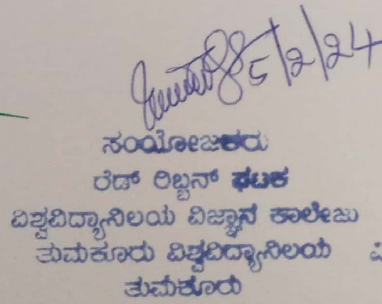 5/2/24
ಸಂಯೋಜಕರು
ರೆಡ್ ರಿಬ್ಬನ್ ಘಟಕ
ವಿಶ್ವವಿದ್ಯಾನಿಲಯ ವಿಜ್ಞಾನ ಕಾಲೇಜು
ತುಮಕೂರು ವಿಶ್ವವಿದ್ಯಾನಿಲಯ
ತುಮಕೂರು